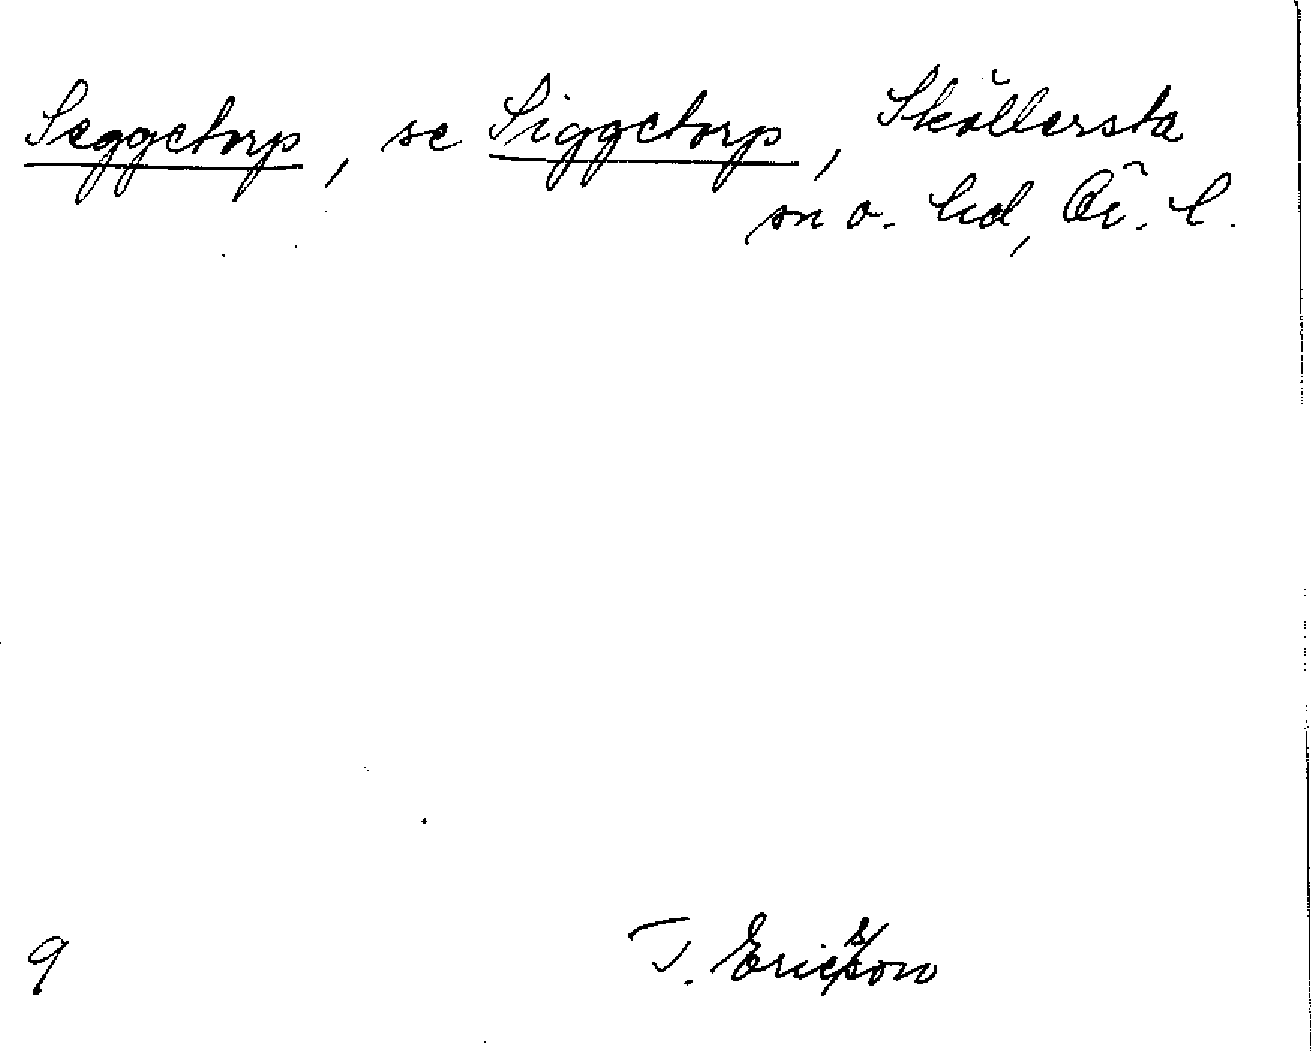 Seggetorp, se Siggetorp, Sköllersta
sn o. hd, Ör. l.
9
T. Ericsson